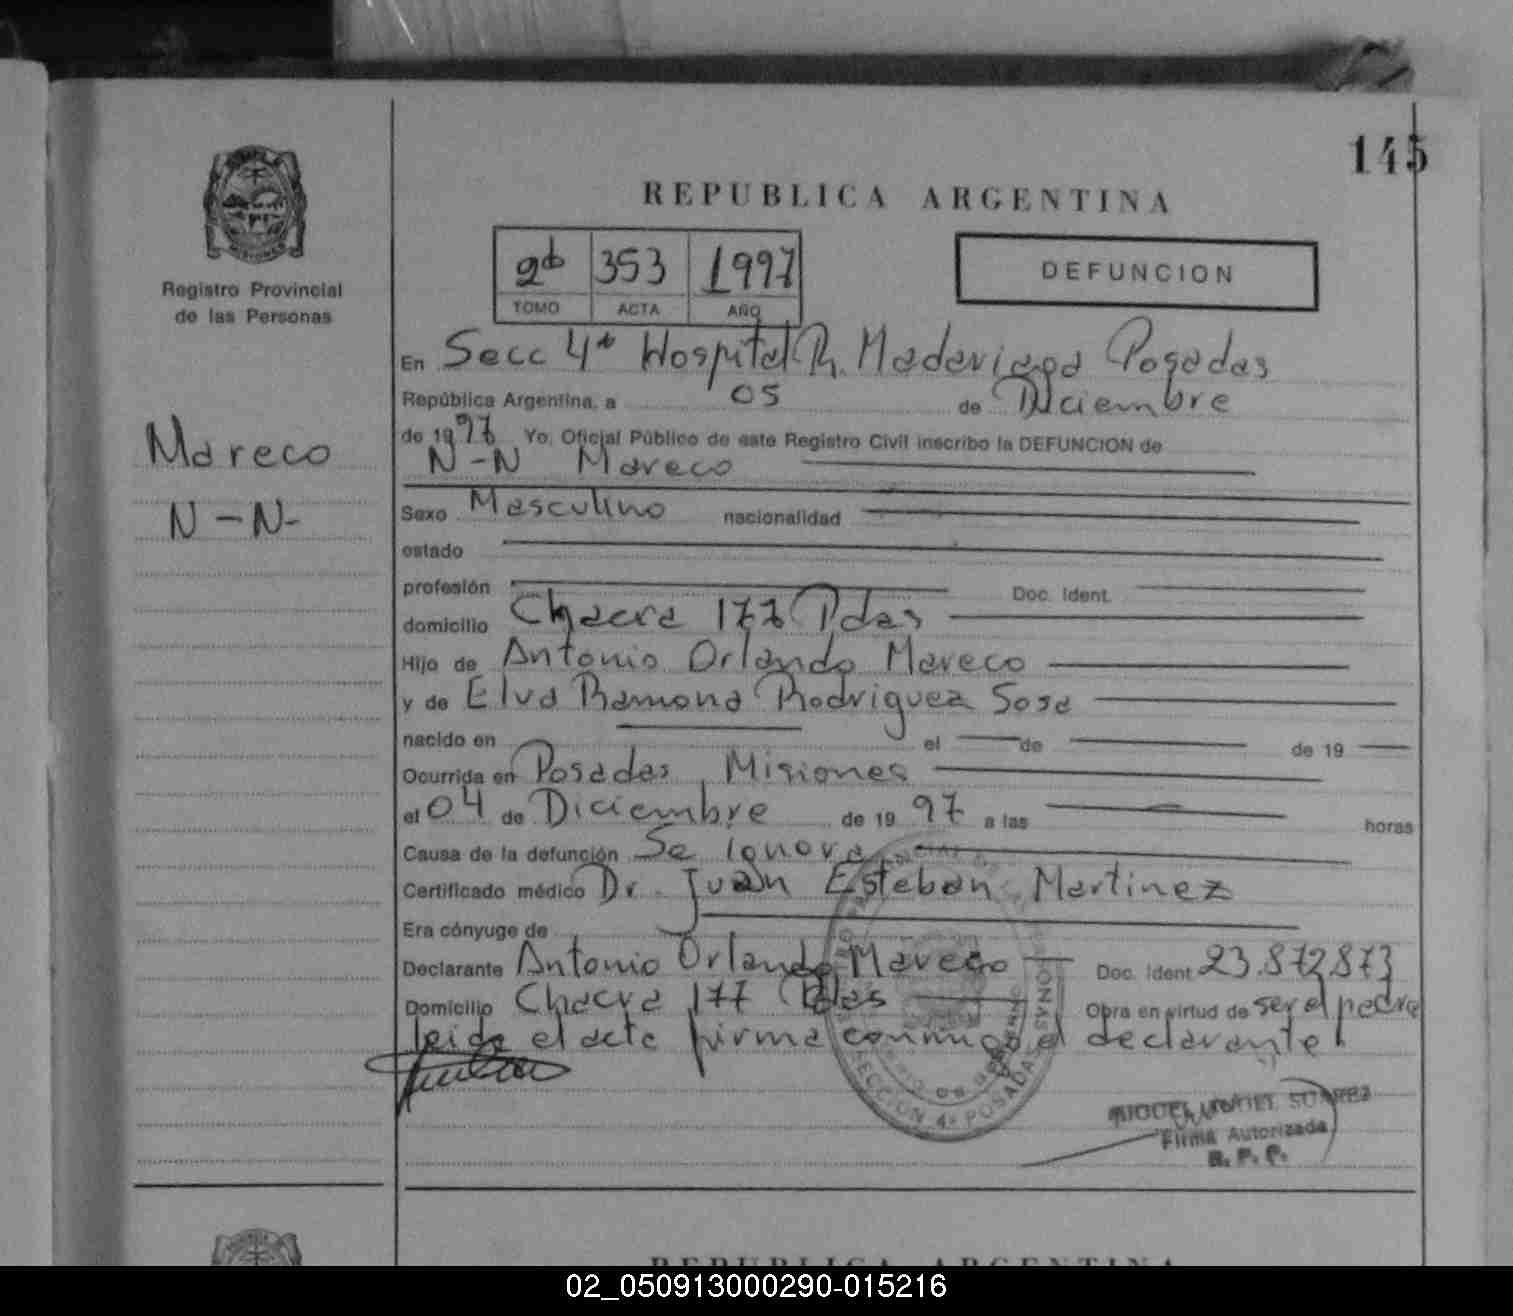 145
REPUBLICA ARGENTINA
Registro Provincial
de las Personas
2do 353 1997
TOMO ACTA AÑO
DEFUNCION
En Secc 4ta Hospital R. Madariaga Posadas
República Argentina, a 05 de Diciembre
de 1997 Yo, Oficial Público de este Registro Civil inscribo la DEFUNCION de
Mareco
N-N Mareco
N-N-
Sexo Masculino nacionalidad
estado
profesión Doc. Ident.
domicilio Chacra 177 Pdas
Hijo de Antonio Orlando Mareco
y de Elva Ramona Rodriguez Sosa
nacido en el de de 19
Ocurrida en Posadas, Misiones
el 04 de Diciembre de 1997 a las horas
Causa de la defunción Se ignora
Certificado médico Dr. Juan Esteban Martinez
Era cónyuge de
Declarante Antonio Orlando Mareco Doc. Ident. 23.872.873
Domicilio Chacra 177 Pdas Obra en virtud de ser el padre
leida el acta firma conmigo el declarante.
SECCION 4ª POSADAS
SUAREZ
Firma Autorizada
R. P. P.
REPUBLICA ARGENTINA
02_050913000290-015216